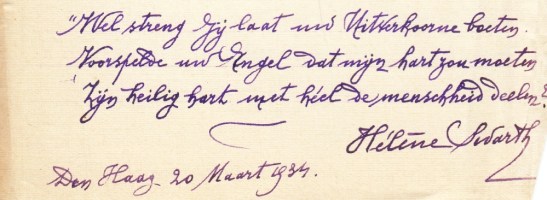 "Wel streng Gij laat uw Uitverkoorne boeten.
Voorspelde uw Engel dat mijn hart zou moeten
Zijn heilig hart met héél de menschheid deelen?
Hélène Swarth
Den Haag 20 Maart 1934.